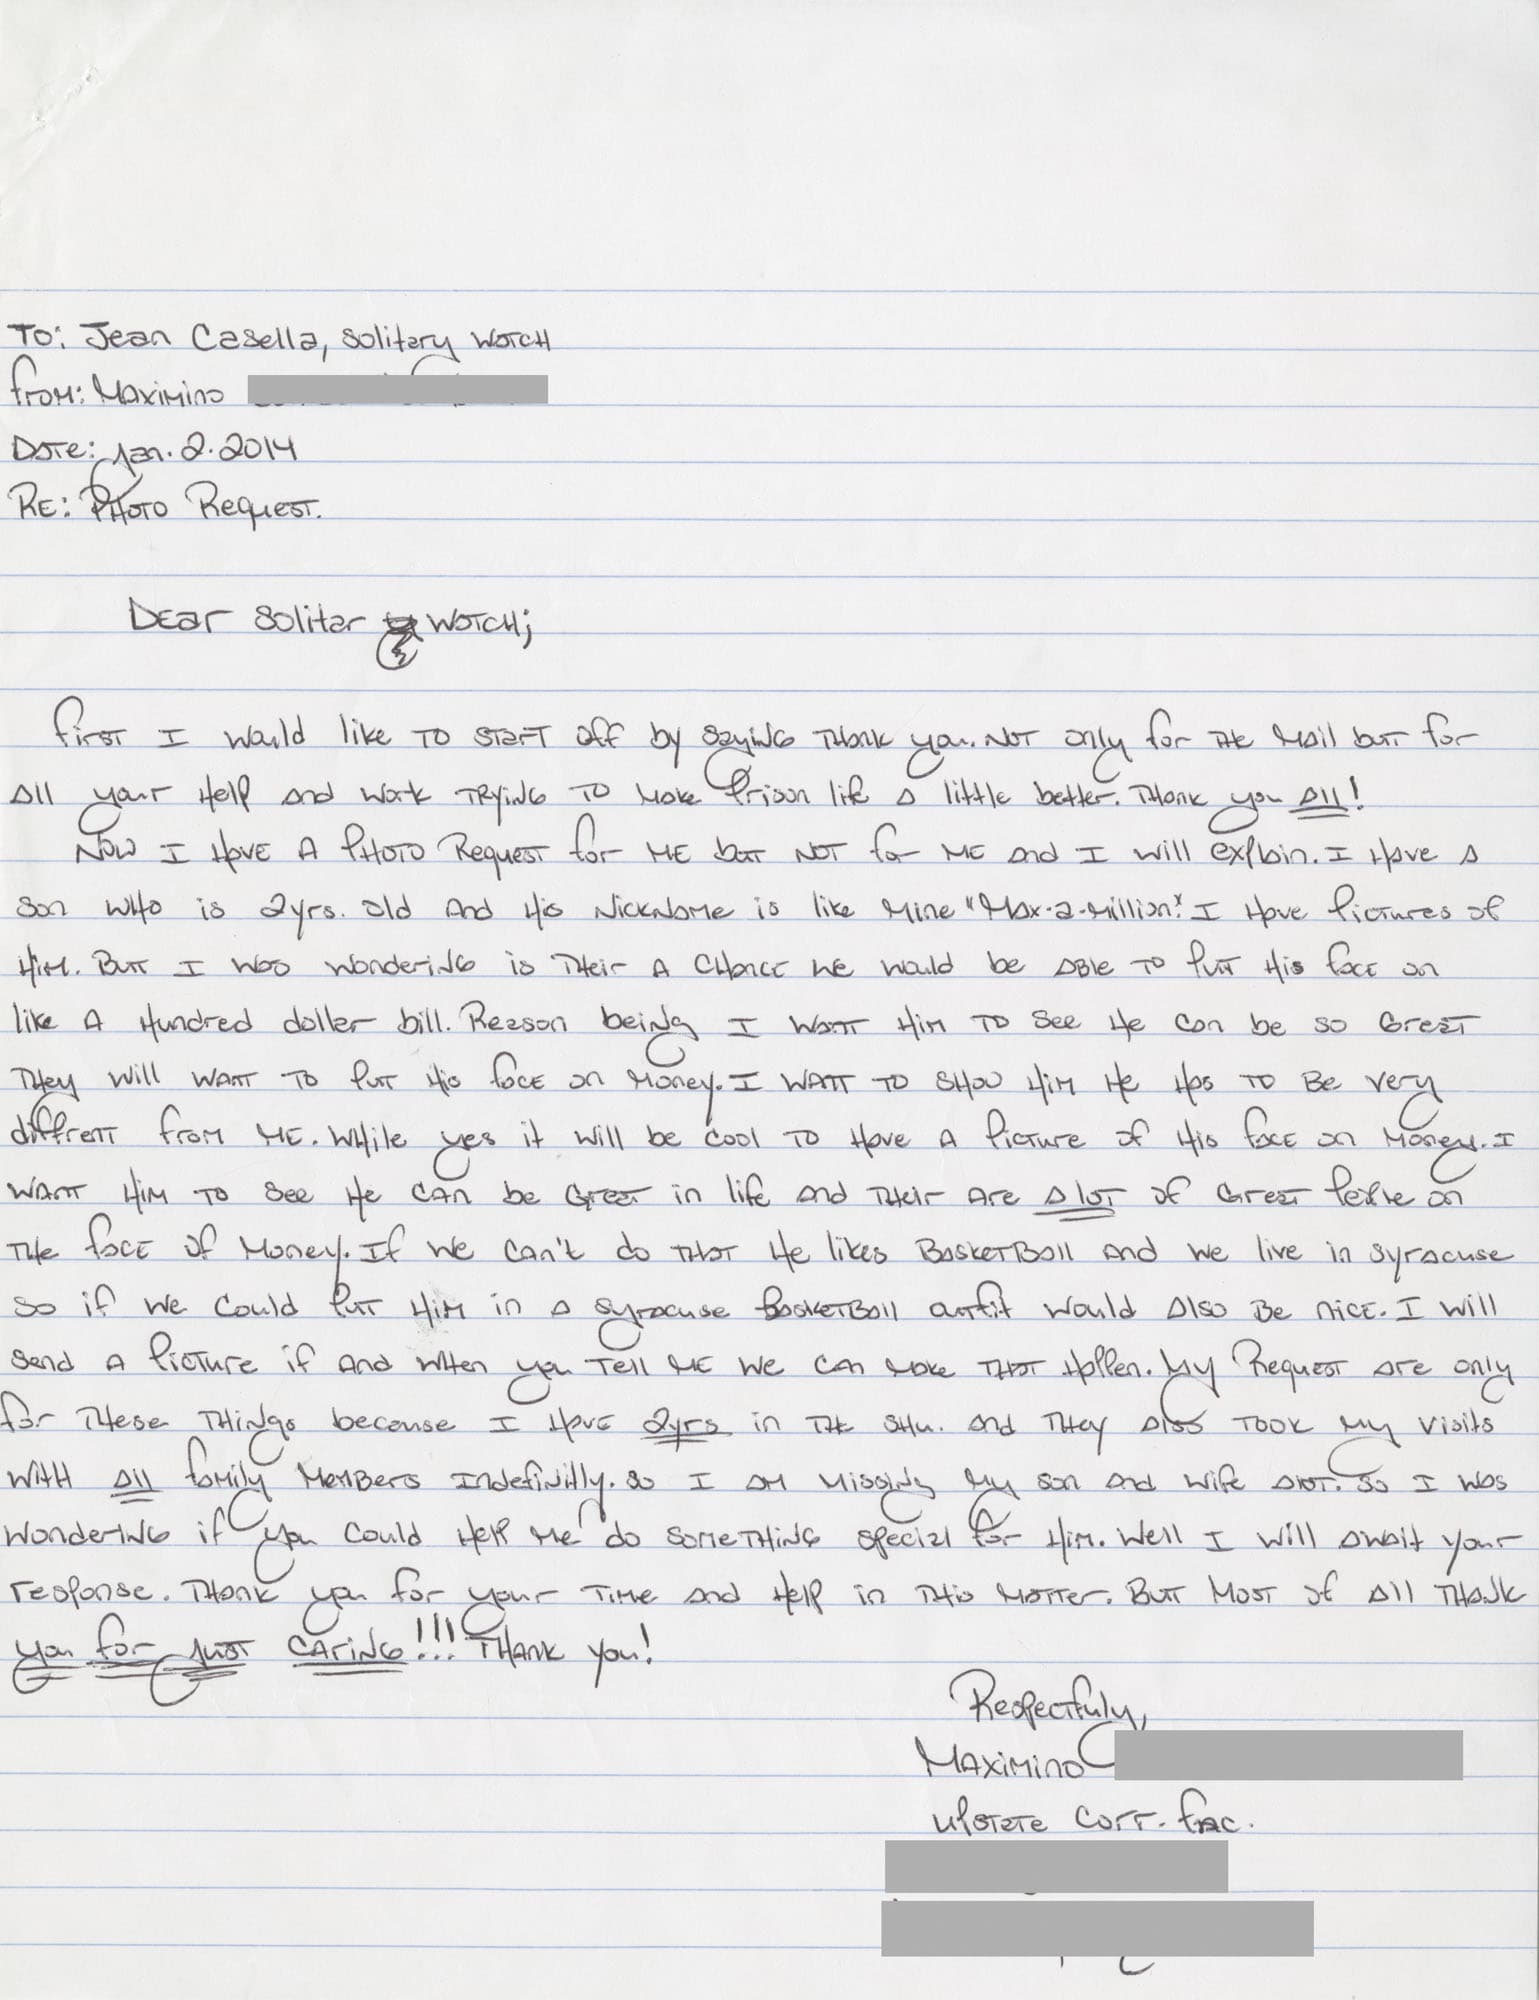 To: Jean Casella, Solitary Watch
From: Maximino
Date: Jan. 2. 2014
RE: Photo Request.
Dear Solitary Watch;
First I would like to start off by saying thank you. Not only for the mail but for
all your help and work trying to make prison life a little better. Thank you all!
Now I have a photo request for me but not for me and I will explain. I have a
son who is 2yrs. old and his nickname is like mine "Max-a-million". I have pictures of
him. But I was wondering is their a chance we would be able to put his face on
like a hundred doller bill. Reason being I want him to see he can be so great
they will want to put his face on money. I want to show him he has to be very
diffrent from me. While yes it will be cool to have a picture of his face on money. I
want him to see he can be great in life and their are alot of great people on
the face of money. If we can't do that he likes basketball and we live in Syracuse
so if we could put him in a Syracuse basketball outfit would also be nice. I will
send a picture if and when you tell me we can make that happen. My request are only
for these things because I have 2yrs in the SHU. and they also took my visits
with all family members indefinitly. So I am missing my son and wife alot. So I was
wondering if you could help me do something special for him. Well I will await your
response. Thank you for your time and help in this matter. But most of all thank
you for just caring!!! Thank you!
Respectfuly,
Maximino
Upstate Corr. Fac.